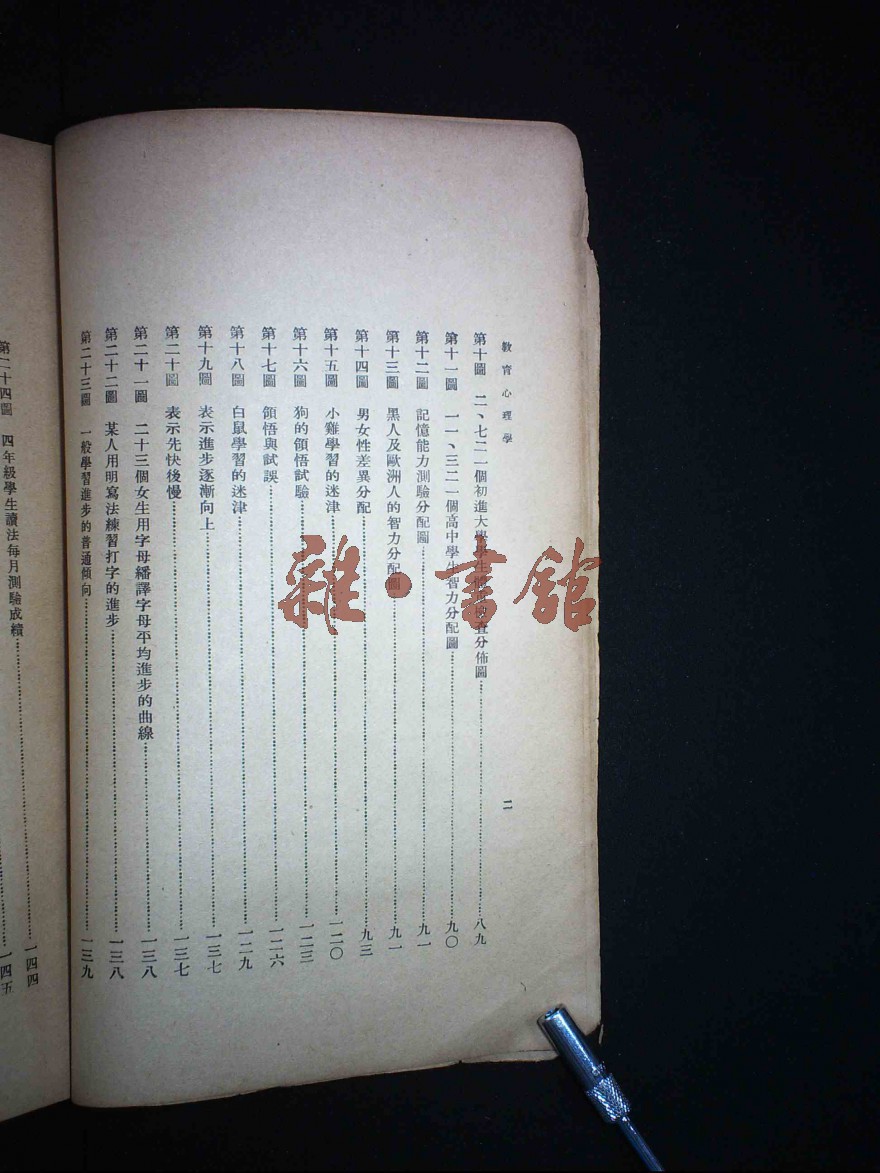 教育心理學
二
第十圖 二、七二一個初進大學學生 查分佈圖……八九
第十一圖 一一、三二一個高中學生智力分配圖……九〇
第十二圖 記憶能力測驗分配圖……九一
第十三圖 黑人及歐洲人的智力分配圖……九一
第十四圖 男女性差異分配……九三
第十五圖 小雞學習的迷津……一二〇
第十六圖 狗的領悟試驗……一二三
第十七圖 領悟與試誤……一二六
第十八圖 白鼠學習的迷津……一二九
第十九圖 表示進步逐漸向上……一三七
第二十圖 表示先快後慢……一三七
第二十一圖 二十三個女生用字母繙譯字母平均進步的曲線……一三八
第二十二圖 某人用明寫法練習打字的進步……一三八
第二十三圖 一般學習進步的普通傾向……一三九
第二十四圖 四年級學生讀法每月測驗成績……一四四
一四五
雜·書館